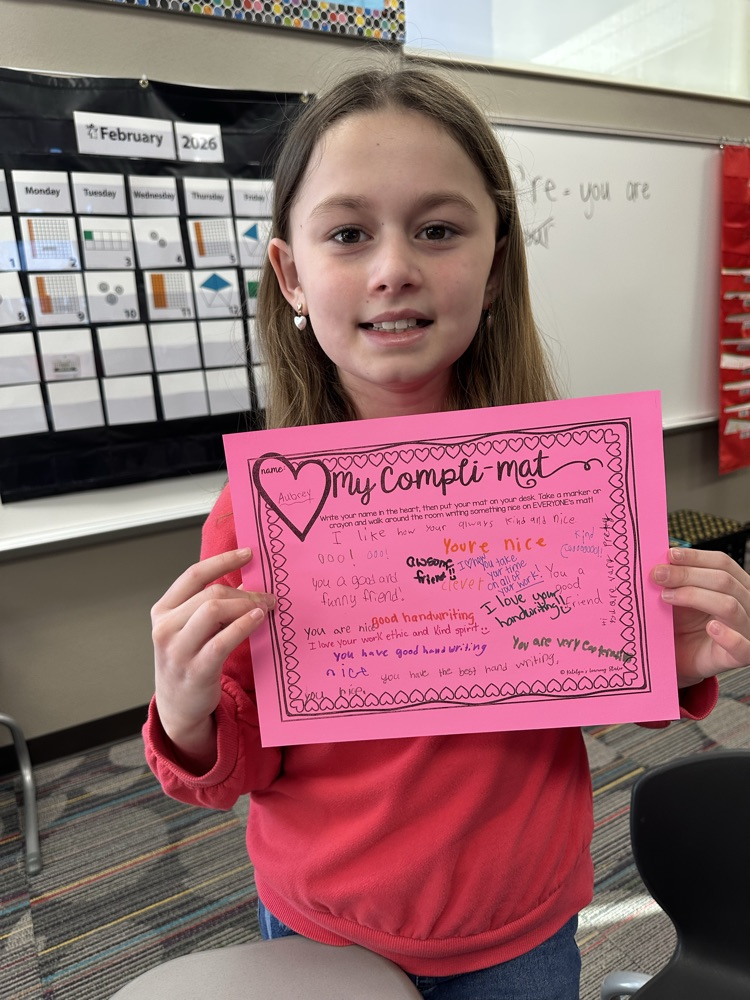 February 2026
Monday Tuesday Wednesday Thursday Friday
1 2 3 4 5 6
8 9 10 11 12
're = you are
name:
Aubrey
My Compli-mat
Write your name in the heart, then put your mat on your desk. Take a marker or
crayon and walk around the room writing something nice on EVERYONE'S mat!
I like how your always kind and nice
ooo! ooo!
you a good and
funny friend!
awesome
friend!!
Youre nice
clever
you take
your time
on all of
your work!
kind
You a
good
friend
I love your
handwriting!!
you are very pretty
You are nice
good handwriting
I love your work ethic and kind spirit
you have good hand writing
nice
You are very
you have the best hand writing,
you nice.
© Katelyn's Learning Studio